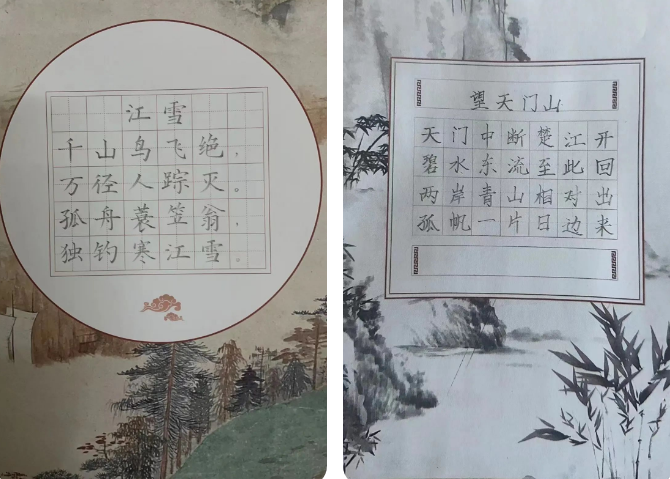 江雪
千山鸟飞绝，
万径人踪灭。
孤舟蓑笠翁，
独钓寒江雪。
望天门山
天门中断楚江开
碧水东流至此回
两岸青山相对出
孤帆一片日边来